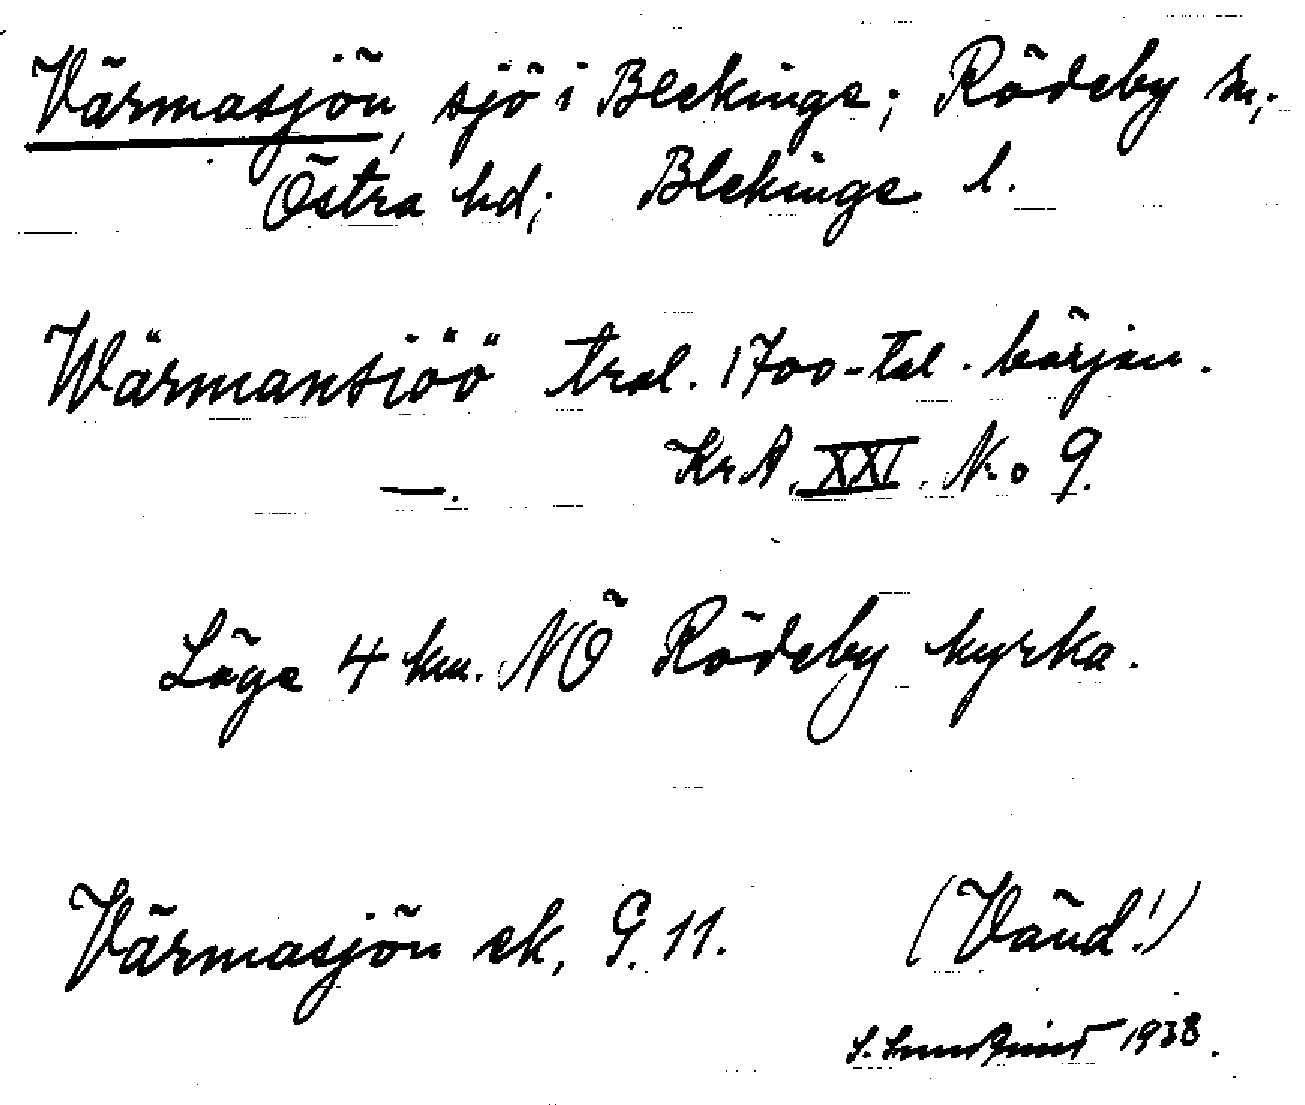 Värmasjön, sjö i Blekinge; Rödeby sn,.
Östra hd; Blekinge l.
Wärmansiöö trol. 1700-tal. början.
—. KrA, XXI, No 9.
Läge 4 km. NÖ Rödeby kyrka.
Värmasjön ek, 9.11. (Vänd!)
S. 1938.